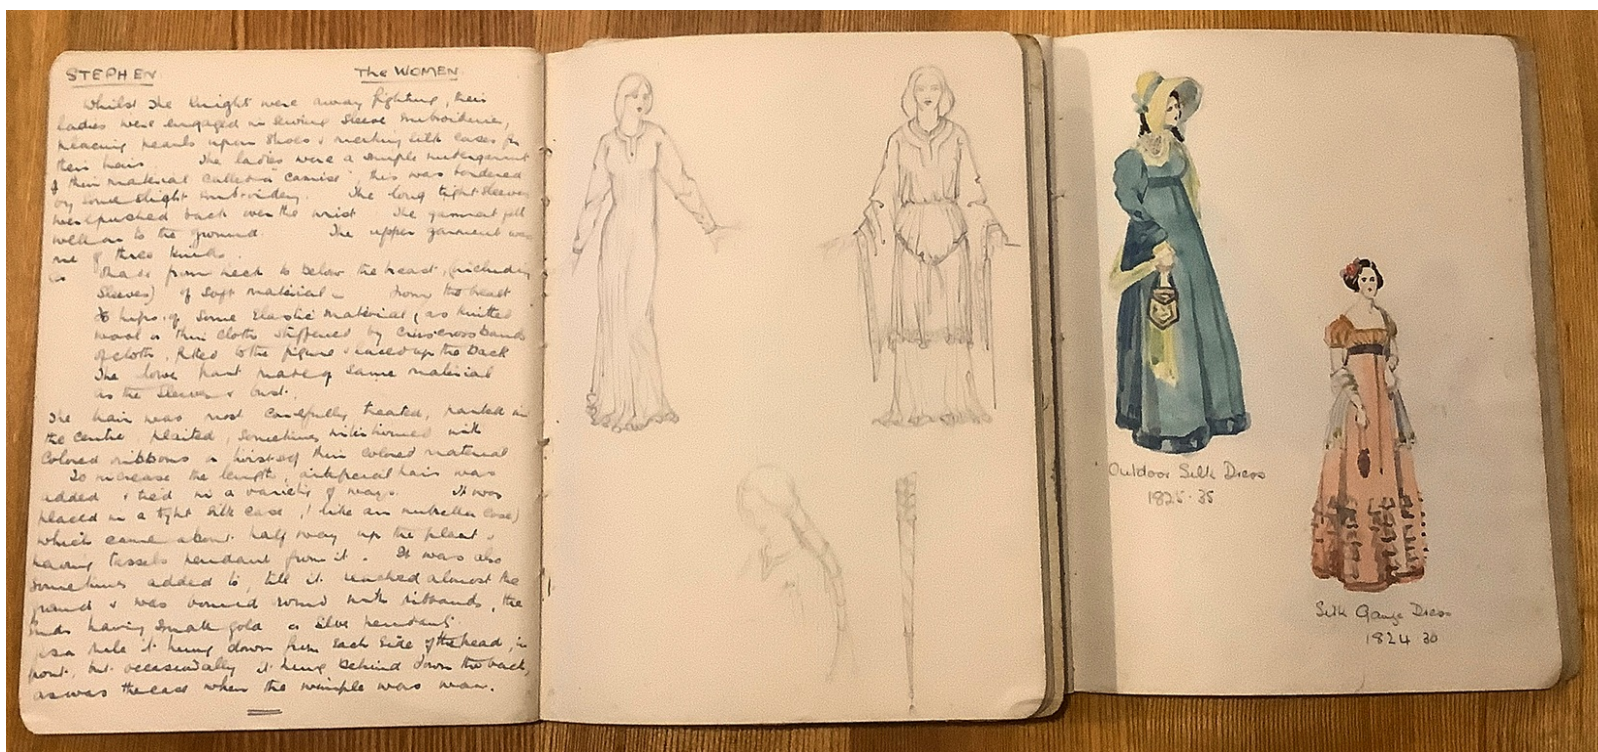 STEPHEN The WOMEN
Whilst the knight were away fighting, their
ladies were engaged in sewing sleeve embroideries,
placing pearls upon shoes & making silk cases for
their hair. The ladies wore a simple undergarment
of thin material called a "camise", this was bordered
by some slight embroidery. The long tight sleeves
were pushed back over the wrist The garment fell
well on to the ground. The upper garment was
one of three kinds.
Made from neck to below the breast, (including
sleeves) of soft material – from the breast
to hips of some elastic material, as knitted
wool or thin cloth stiffened by crisscross bands
of cloth, fitted to the figure & laced up the back
The lower part made of same material
as the sleeves & bust.
The hair was most carefully treated, parted in
the centre, plaited, sometimes with
colored ribbons or twisted thin colored material
To increase the length, artificial hair was
added & tied in a variety of ways. It was
placed in a tight silk case, (like an umbrella case)
which came about half way up the plait &
having tassels pendant from it. It was also
sometimes added to, till it reached almost the
ground & was bound round with ribbands, the
ends having small gold or silver pendants.
As a rule it hung down from each side of the head, in
front, but occasionally it hung behind down the back,
as was the case when the wimple was worn.
Outdoor Silk Dress
1825-35
Silk Gauze Dress
1824 30